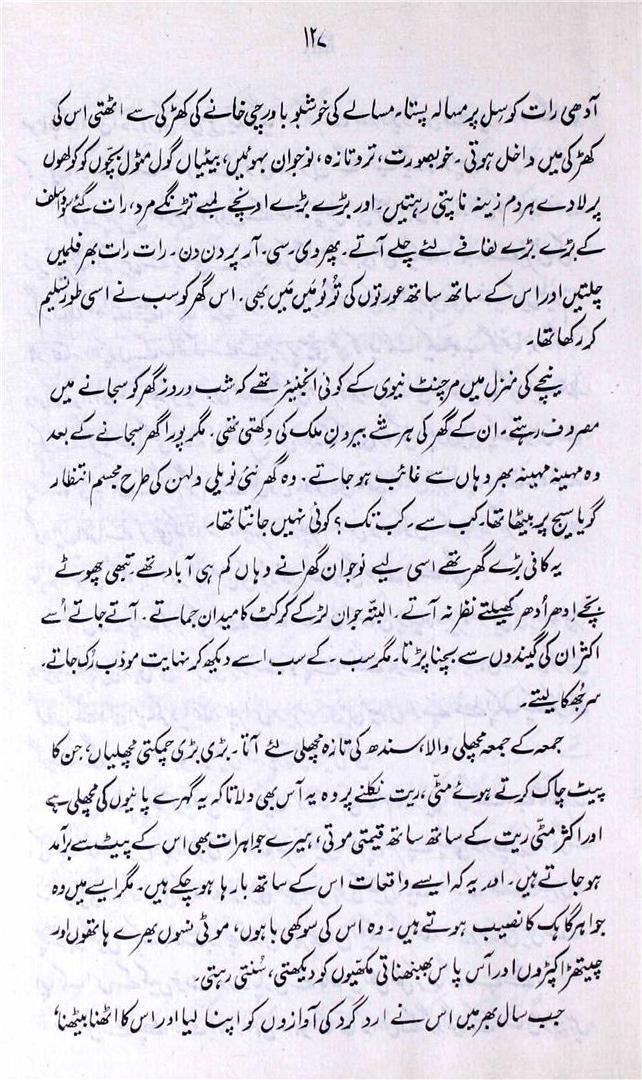 ۱۲۷
آدھی رات کو سل پر مسالہ پستا۔ مسالے کی خوشبو باورچی خانے کی کھڑکی سے اٹھتی اس کی
کھڑکی میں داخل ہوتی۔ خوبصورت، تر و تازہ، نوجوان بہوئیں، بیٹیاں گول مٹول بچوں کو کولھوں
پر لادے ہر دم زینہ ناپتی رہتیں۔ اور بڑے بڑے اونچے لمبے تڑنگے مرد، رات گئے
کے بڑے بڑے لفافے لئے چلے آتے۔ پھر وی۔ سی۔ آر پر دن دن۔ رات رات بھر فلمیں
چلتیں اور اس کے ساتھ ساتھ عورتوں کی تُو تُو مَیں مَیں بھی۔ اس گھر کو سب نے اسی طور تسلیم
کر رکھا تھا۔
نیچے کی منزل میں مرچنٹ نیوی کے کوئی انجنیئر تھے کہ شب و روز گھر کو سجانے میں
مصروف رہتے۔ ان کے گھر کی ہر شے بیرونِ ملک کی دِکھتی تھی۔ مگر پورا گھر سجانے کے بعد
وہ مہینہ مہینہ بھر وہاں سے غائب ہو جاتے۔ وہ گھر نئی نویلی دلہن کی طرح مجسم انتظار
گویا سیج پر بیٹھا تھا۔ کب سے۔ کب تک؟ کوئی نہیں جانتا تھا۔
یہ کافی بڑے گھر تھے اسی لیے نوجوان گھرانے وہاں کم ہی آباد تھے تبھی چھوٹے
بچے ادھر اُدھر کھیلتے نظر نہ آتے۔ البتہ جوان لڑکے کرکٹ کا میدان جماتے۔ آتے جاتے اُسے
اکثر ان کی گیندوں سے بچنا پڑتا۔ مگر سب۔ کے سب اسے دیکھ کر نہایت موذب رُک جاتے۔
سر جُھکا لیتے۔
جمعہ کے جمعہ مچھلی والا، سندھ کی تازہ مچھلی لئے آتا۔ بڑی بڑی چمکتی مچھلیاں، جن کا
پیٹ چاک کرتے ہوئے مٹی، ریت نکلنے پر وہ یہ آس بھی دلاتا کہ یہ گہرے پانیوں کی مچھلی ہے
اور اکثر مٹی ریت کے ساتھ ساتھ قیمتی موتی، ہیرے جواہرات بھی اس کے پیٹ سے برآمد
ہو جاتے ہیں۔ اور یہ کہ ایسے واقعات اس کے ساتھ بارہا ہو چکے ہیں۔ مگر ایسے میں وہ
جواہر گاہک کا نصیب ہوتے ہیں۔ وہ اس کی سوکھی باہوں، موٹی نسوں بھرے ہاتھوں اور
چیتھڑا کپڑوں اور آس پاس بھنبھناتی مکھیوں کو دیکھتی، سُنتی رہتی۔
جب سال بھر میں اس نے ارد گرد کی آوازوں کو اپنا لیا اور اس کا اٹھنا بیٹھنا،